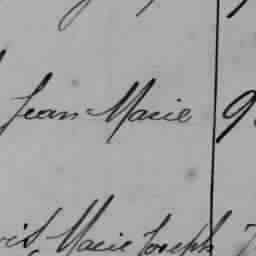 Jean-Marie 9
Marie Joseph